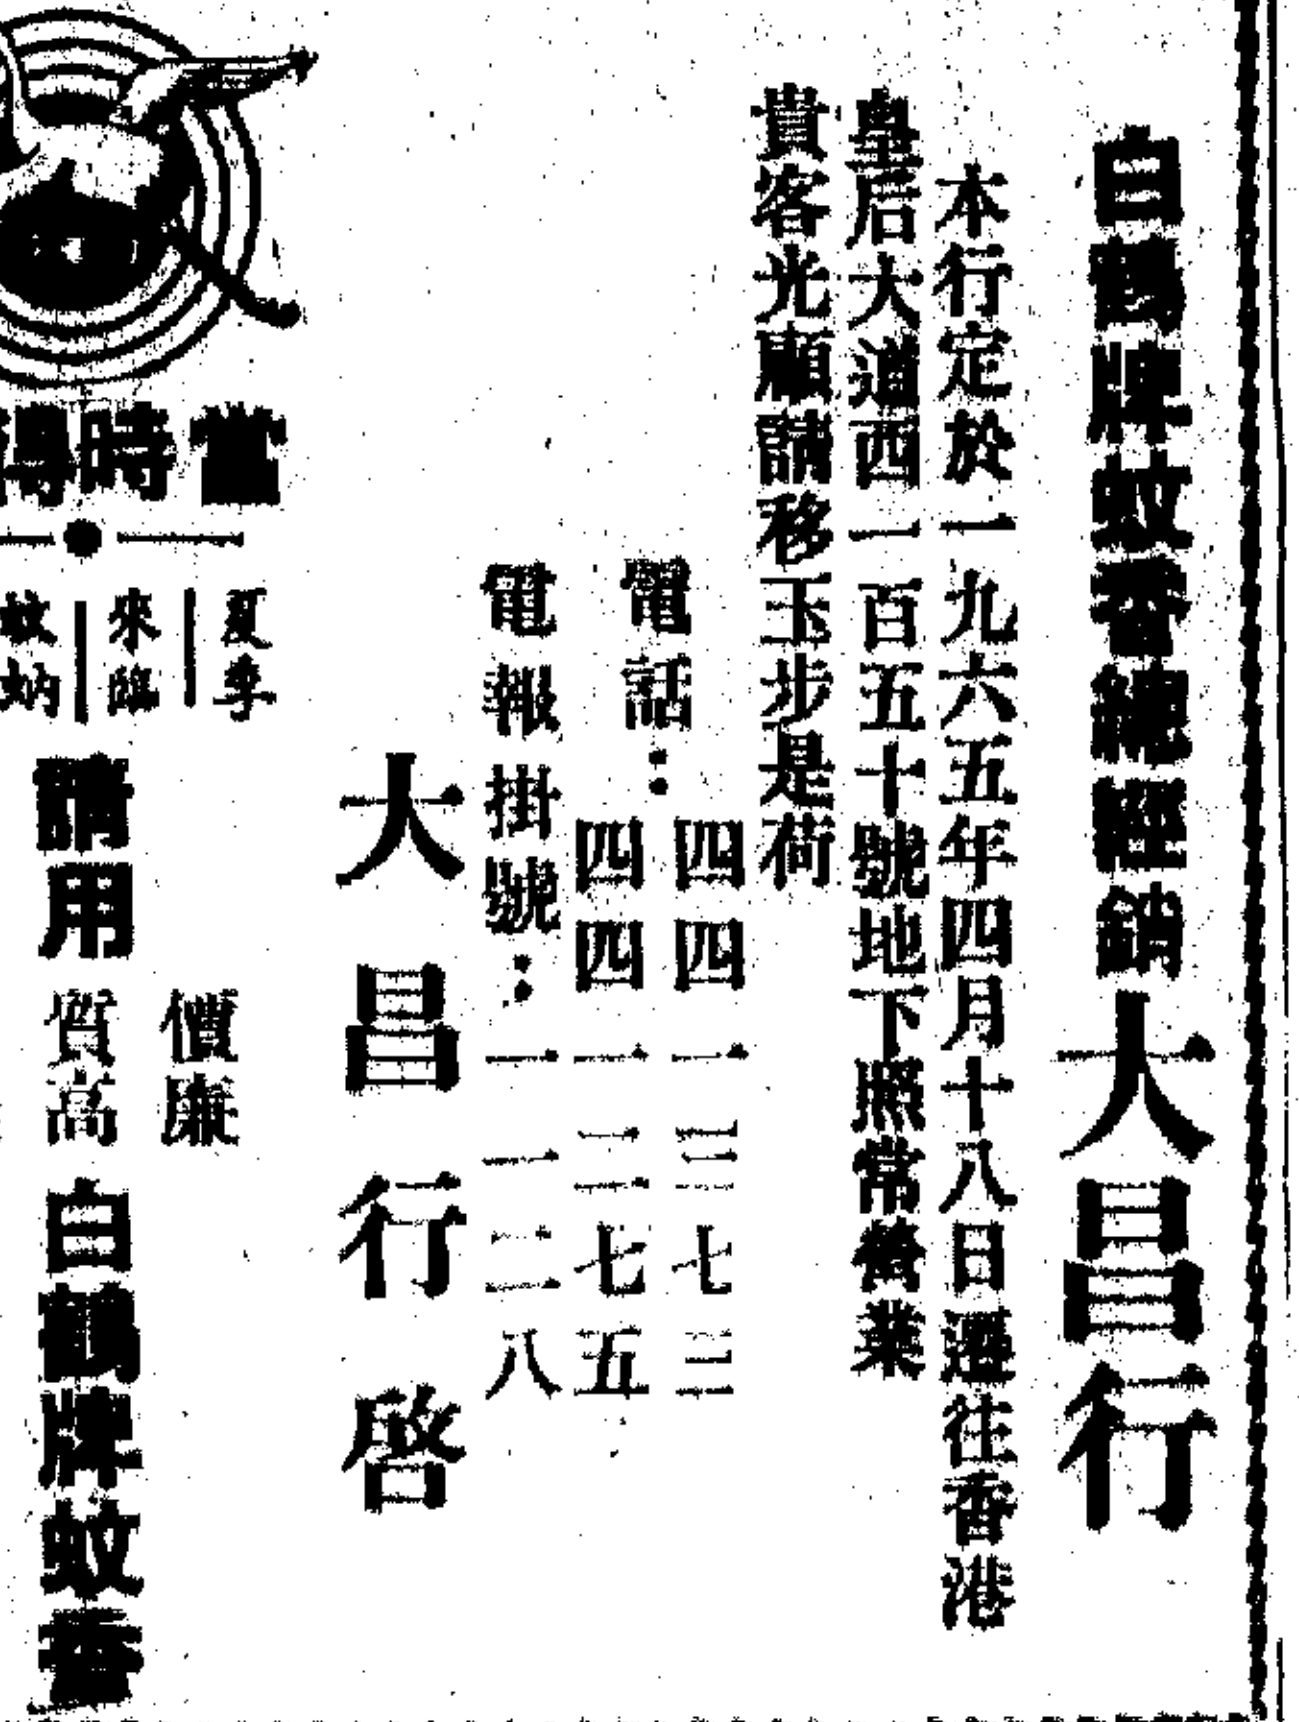 白鶴牌蚊香總經銷大昌行
本行定於一九六五年四月十八日遷往香港
皇后大道西一百五十號地下照常營業
貴客光顧請移玉步是荷
電話：
四四一三七三
四四一三七五
電報掛號：一一二八
大昌行啓
當時得
夏季
來臨
蚊蚋
請用
價廉
質高
白鶴牌蚊香